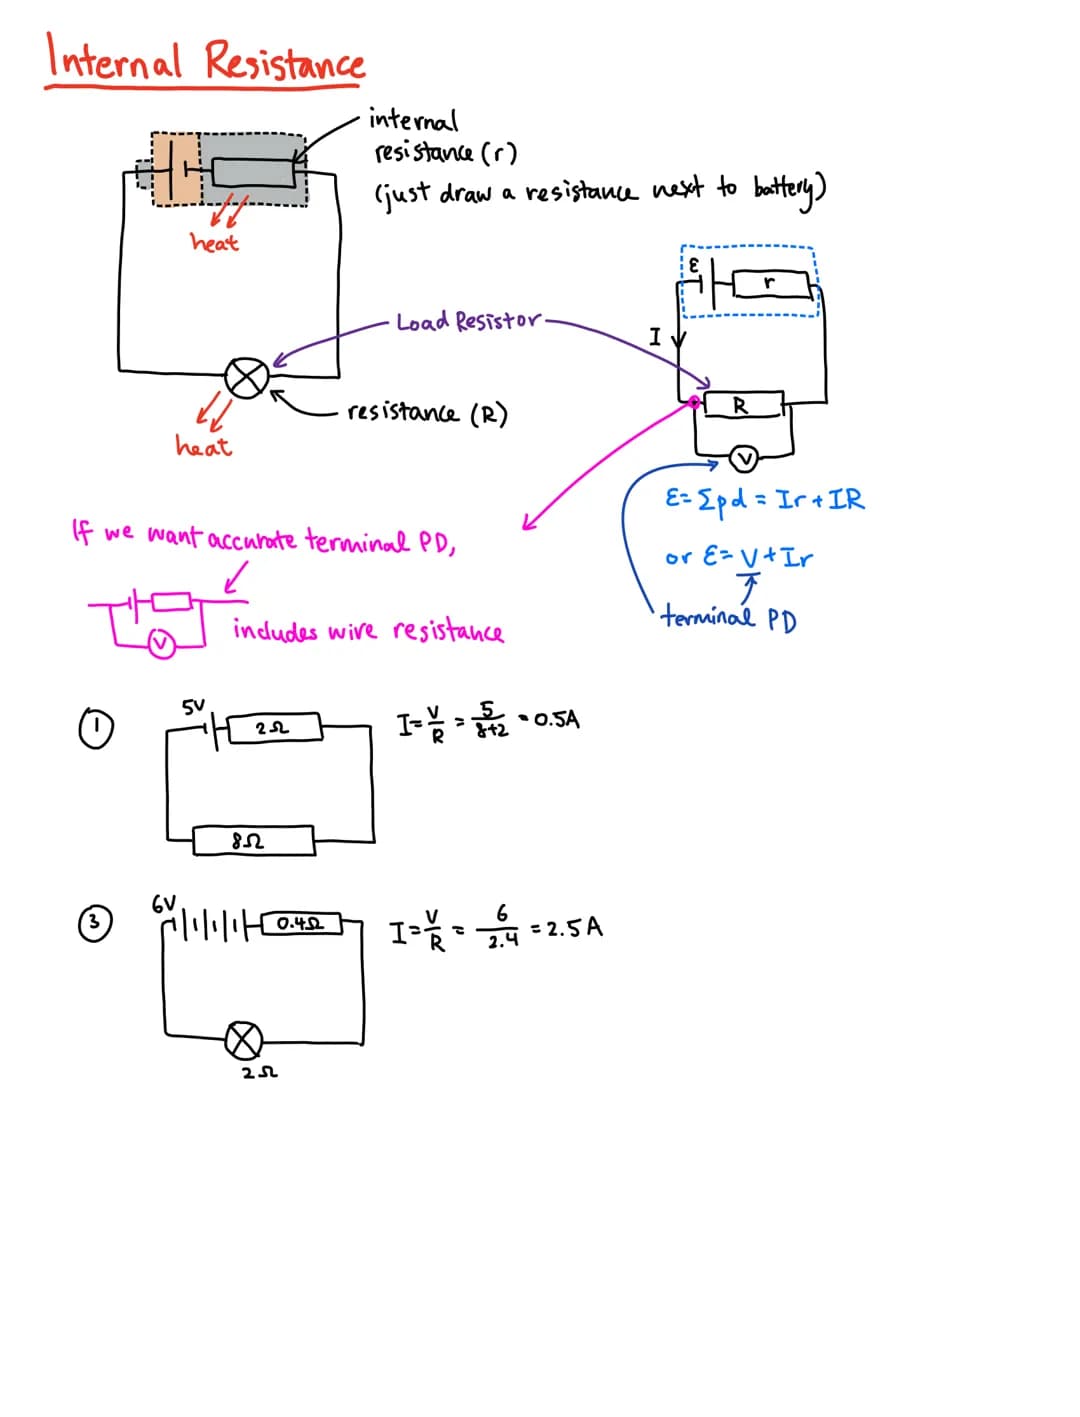 Internal Resistance
internal
resistance (r)
(just draw a resistance next to battery)
heat
ε
r
Load Resistor
I
R
resistance (R)
heat
V
ε = Σpd = Ir + IR
or ε = V + Ir
terminal PD
If we want accurate terminal PD,
V
includes wire resistance
①
5V
2Ω
I = V/R = 5/8+2 = 0.5A
8Ω
③
6V
0.4Ω
I = V/R = 6/2.4 = 2.5A
2Ω